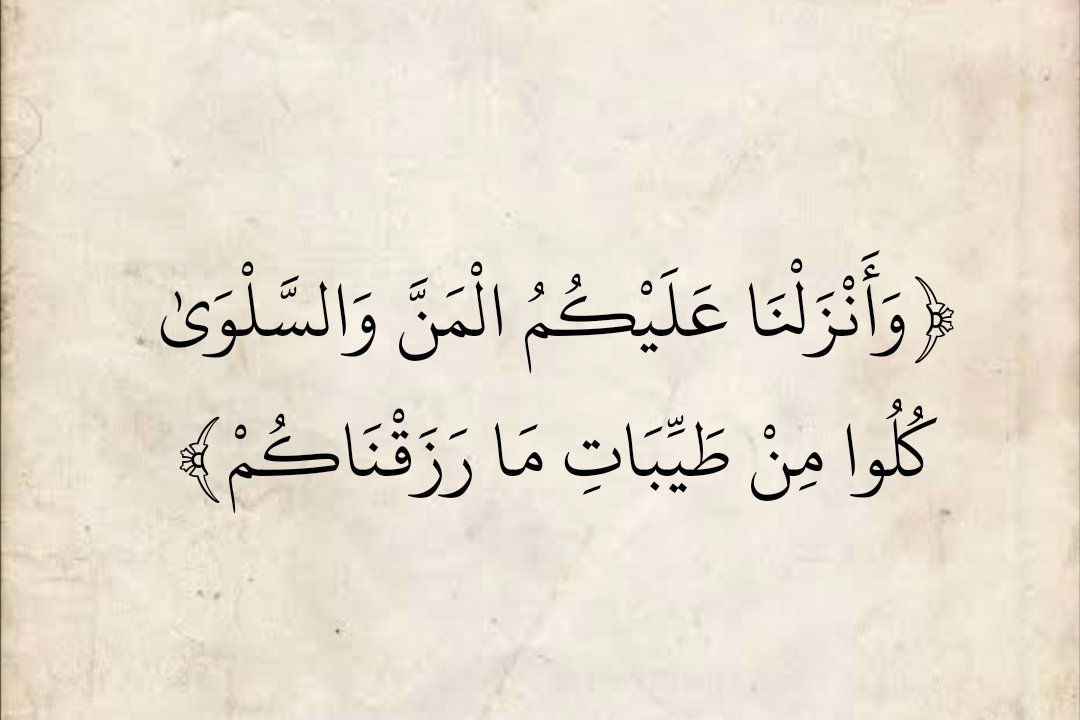 ﴿وَأَنْزَلْنَا عَلَيْكُمُ الْمَنَّ وَالسَّلْوَىٰ
كُلُوا مِنْ طَيِّبَاتِ مَا رَزَقْنَاكُمْ﴾